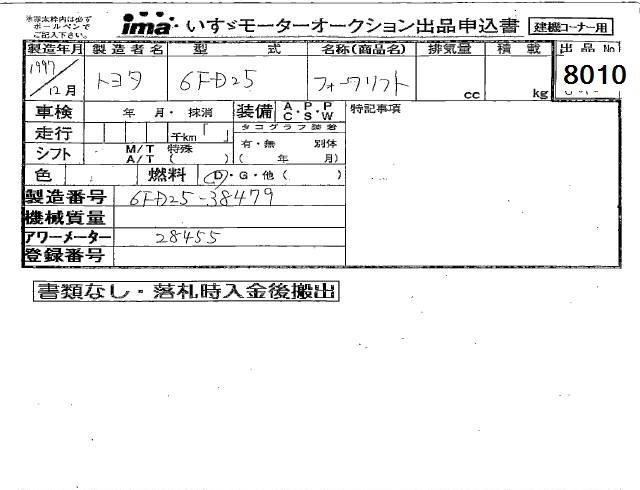 ※黒太枠内は必ず
ボールペンで
ご記入下さい。
ima いすゞモーターオークション出品申込書 建機コーナー用
製造年月 製造者名 型式 名称(商品名) 排気量 積載 出品No
1997/12月 トヨタ 6FD25 フォークリフト cc kg 8010
車検 年 月・抹消 装備 A/C・P/S・P/W 特記事項
走行 千km「 」 タコグラフ装着
シフト M/T A/T 特殊( ) 有・無 別体 ( 年 月)
色 燃料 D・G・他( )
製造番号 6FD25-38479
機械質量
アワーメーター 28455
登録番号
書類なし・落札時入金後搬出